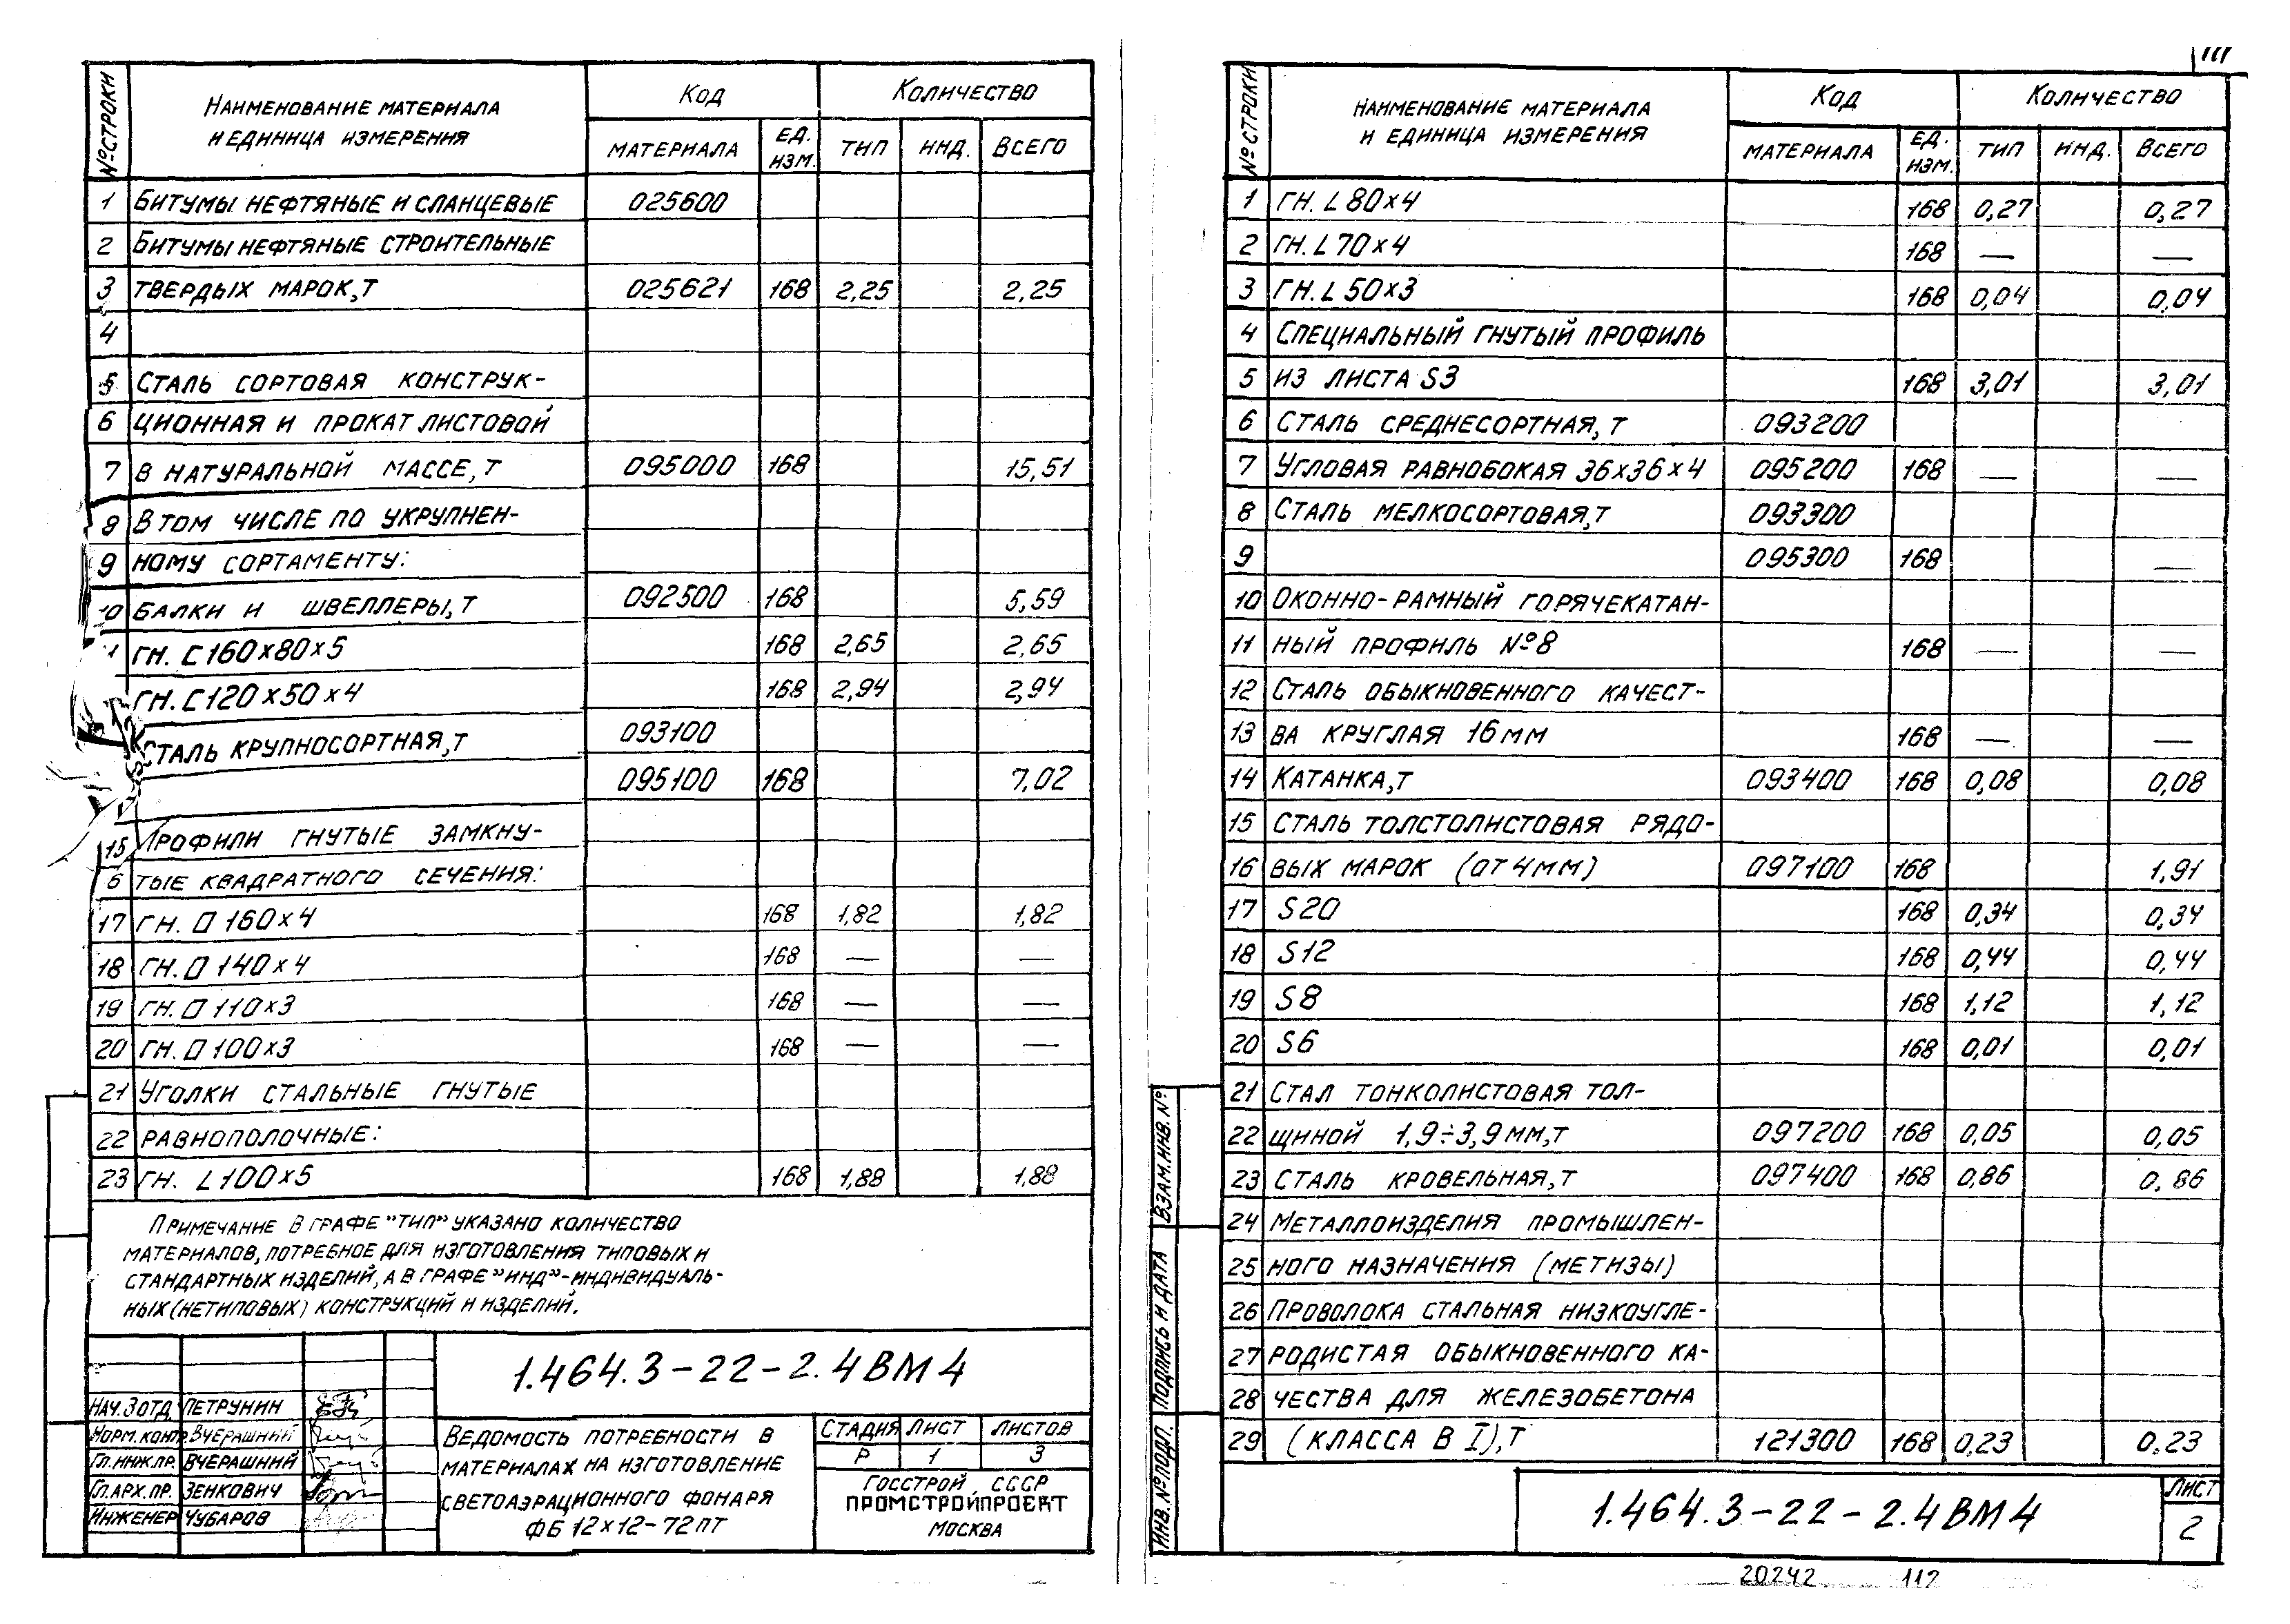 № СТРОКИ
НАИМЕНОВАНИЕ МАТЕРИАЛА
И ЕДИНИЦА ИЗМЕРЕНИЯ
КОД
КОЛИЧЕСТВО
МАТЕРИАЛА ЕД. ИЗМ. ТИП ИНД. ВСЕГО
1 БИТУМЫ НЕФТЯНЫЕ И СЛАНЦЕВЫЕ 025600
2 БИТУМЫ НЕФТЯНЫЕ СТРОИТЕЛЬНЫЕ
3 ТВЕРДЫХ МАРОК, Т 025621 168 2,25 2,25
4
5 СТАЛЬ СОРТОВАЯ КОНСТРУК-
6 ЦИОННАЯ И ПРОКАТ ЛИСТОВОЙ
7 В НАТУРАЛЬНОЙ МАССЕ, Т 095000 168 15,51
8 В ТОМ ЧИСЛЕ ПО УКРУПНЕН-
9 НОМУ СОРТАМЕНТУ:
10 БАЛКИ И ШВЕЛЛЕРЫ, Т 092500 168 5,59
1 ГН. С 160×80×5 168 2,65 2,65
ГН. С 120×50×4 168 2,94 2,94
СТАЛЬ КРУПНОСОРТНАЯ, Т 093100
095100 168 7,02
15 ПРОФИЛИ ГНУТЫЕ ЗАМКНУ-
6 ТЫЕ КВАДРАТНОГО СЕЧЕНИЯ:
17 ГН. □ 160×4 168 1,82 1,82
18 ГН. □ 140×4 168 — —
19 ГН. □ 110×3 168 — —
20 ГН. □ 100×3 168 — —
21 УГОЛКИ СТАЛЬНЫЕ ГНУТЫЕ
22 РАВНОПОЛОЧНЫЕ:
23 ГН. L 100×5 168 1,88 1,88
ПРИМЕЧАНИЕ В ГРАФЕ "ТИП" УКАЗАНО КОЛИЧЕСТВО
МАТЕРИАЛОВ, ПОТРЕБНОЕ ДЛЯ ИЗГОТОВЛЕНИЯ ТИПОВЫХ И
СТАНДАРТНЫХ ИЗДЕЛИЙ, А В ГРАФЕ "ИНД"-ИНДИВИДУАЛЬ-
НЫХ (НЕТИПОВЫХ) КОНСТРУКЦИЙ И ИЗДЕЛИЙ.
1.464.3-22-2.4 ВМ 4
НАЧ.ЗОТД ПЕТРУНИН
НОРМ.КОНТР. ВЧЕРАШНИЙ
ГЛ.ИНЖ.ПР. ВЧЕРАШНИЙ
ГЛ.АРХ.ПР. ЗЕНКОВИЧ
ИНЖЕНЕР ЧУБАРОВ
ВЕДОМОСТЬ ПОТРЕБНОСТИ В
МАТЕРИАЛАХ НА ИЗГОТОВЛЕНИЕ
СВЕТОАЭРАЦИОННОГО ФОНАРЯ
ФБ 12×12-72ПТ
СТАДИЯ ЛИСТ ЛИСТОВ
Р 1 3
ГОССТРОЙ СССР
ПРОМСТРОЙПРОЕКТ
МОСКВА
111
№ СТРОКИ
НАИМЕНОВАНИЕ МАТЕРИАЛА
И ЕДИНИЦА ИЗМЕРЕНИЯ
КОД
КОЛИЧЕСТВО
МАТЕРИАЛА ЕД. ИЗМ. ТИП ИНД. ВСЕГО
1 ГН. L 80×4 168 0,27 0,27
2 ГН. L 70×4 168 — —
3 ГН. L 50×3 168 0,04 0,04
4 СПЕЦИАЛЬНЫЙ ГНУТЫЙ ПРОФИЛЬ
5 ИЗ ЛИСТА S3 168 3,01 3,01
6 СТАЛЬ СРЕДНЕСОРТНАЯ, Т 093200
7 УГЛОВАЯ РАВНОБОКАЯ 36×36×4 095200 168 — —
8 СТАЛЬ МЕЛКОСОРТОВАЯ, Т 093300
9 095300 168 —
10 ОКОННО-РАМНЫЙ ГОРЯЧЕКАТАН-
11 НЫЙ ПРОФИЛЬ №8 168 — —
12 СТАЛЬ ОБЫКНОВЕННОГО КАЧЕСТ-
13 ВА КРУГЛАЯ 16 ММ 168 — —
14 КАТАНКА, Т 093400 168 0,08 0,08
15 СТАЛЬ ТОЛСТОЛИСТОВАЯ РЯДО-
16 ВЫХ МАРОК (ОТ 4 ММ) 097100 168 1,91
17 S20 168 0,34 0,34
18 S12 168 0,44 0,44
19 S8 168 1,12 1,12
20 S6 168 0,01 0,01
21 СТАЛ ТОНКОЛИСТОВАЯ ТОЛ-
22 ЩИНОЙ 1,9÷3,9 ММ, Т 097200 168 0,05 0,05
23 СТАЛЬ КРОВЕЛЬНАЯ, Т 097400 168 0,86 0,86
24 МЕТАЛЛОИЗДЕЛИЯ ПРОМЫШЛЕН-
25 НОГО НАЗНАЧЕНИЯ (МЕТИЗЫ)
26 ПРОВОЛОКА СТАЛЬНАЯ НИЗКОУГЛЕ-
27 РОДИСТАЯ ОБЫКНОВЕННОГО КА-
28 ЧЕСТВА ДЛЯ ЖЕЛЕЗОБЕТОНА
29 (КЛАССА В I), Т 121300 168 0,23 0,23
ВЗАМ.ИНВ.№
ПОДПИСЬ И ДАТА
ИНВ.№ ПОДЛ.
1.464.3-22-2.4 ВМ 4
ЛИСТ
2
20242 112